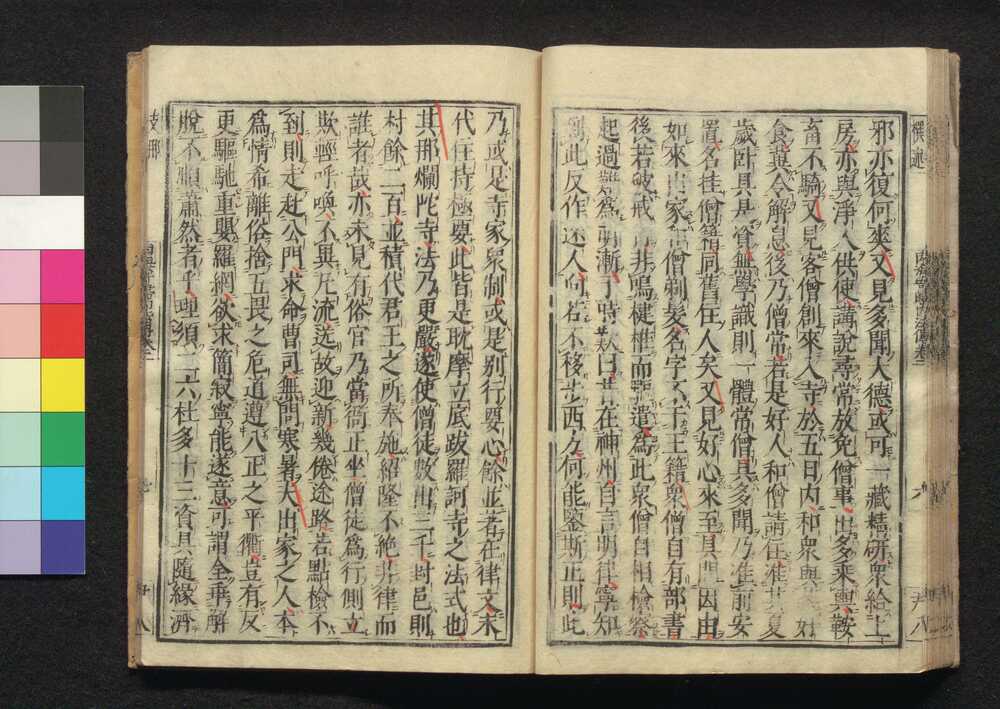 邪亦復何爽又見多聞大德或可一藏精研衆給上
房亦與淨人供使講說尋常放免僧事出多乘輿鞍
畜不騎又見客僧創來入寺於五日内和衆與其好
食冀令解息後乃僧常若是好人和僧請住准其夏
歲臥具是資無學識則一體常僧具多聞乃准前安
置名挂僧籍同舊住人矣又見好心來至具問因由
如求出家和僧剃髮名字不干王籍衆僧自有部書
後若破戒行非鳴健椎而驅遣爲此衆僧自相檢察
起過難爲萌漸于時歎曰昔在神州自言明律寧知
到此反作迷人向若不移步西方何能鑒斯正則此
乃或是寺家衆制或是別行要心餘並著在律文末
代住持極要此皆是耽摩立底跋羅訶寺之法式也
其那爛陀寺法乃更嚴遂使僧徒數出三千封邑則
村餘二百並積代君王之所奉施紹隆不絶非律而
誰者哉亦未見有俗官乃當衙正坐僧徒爲行側立
欺輕呼喚不異凡流送故迎新幾倦途路若點檢不
到則走赴公門求命曹司無問寒暑夫出家之人本
爲情希離俗捨五畏之危道遵八正之平衢豈有反
更驅馳重嬰羅網欲求簡寂寧能遂意可謂全乖解
脫不順蕭然者乎理須二六杜多十三資具隨緣濟